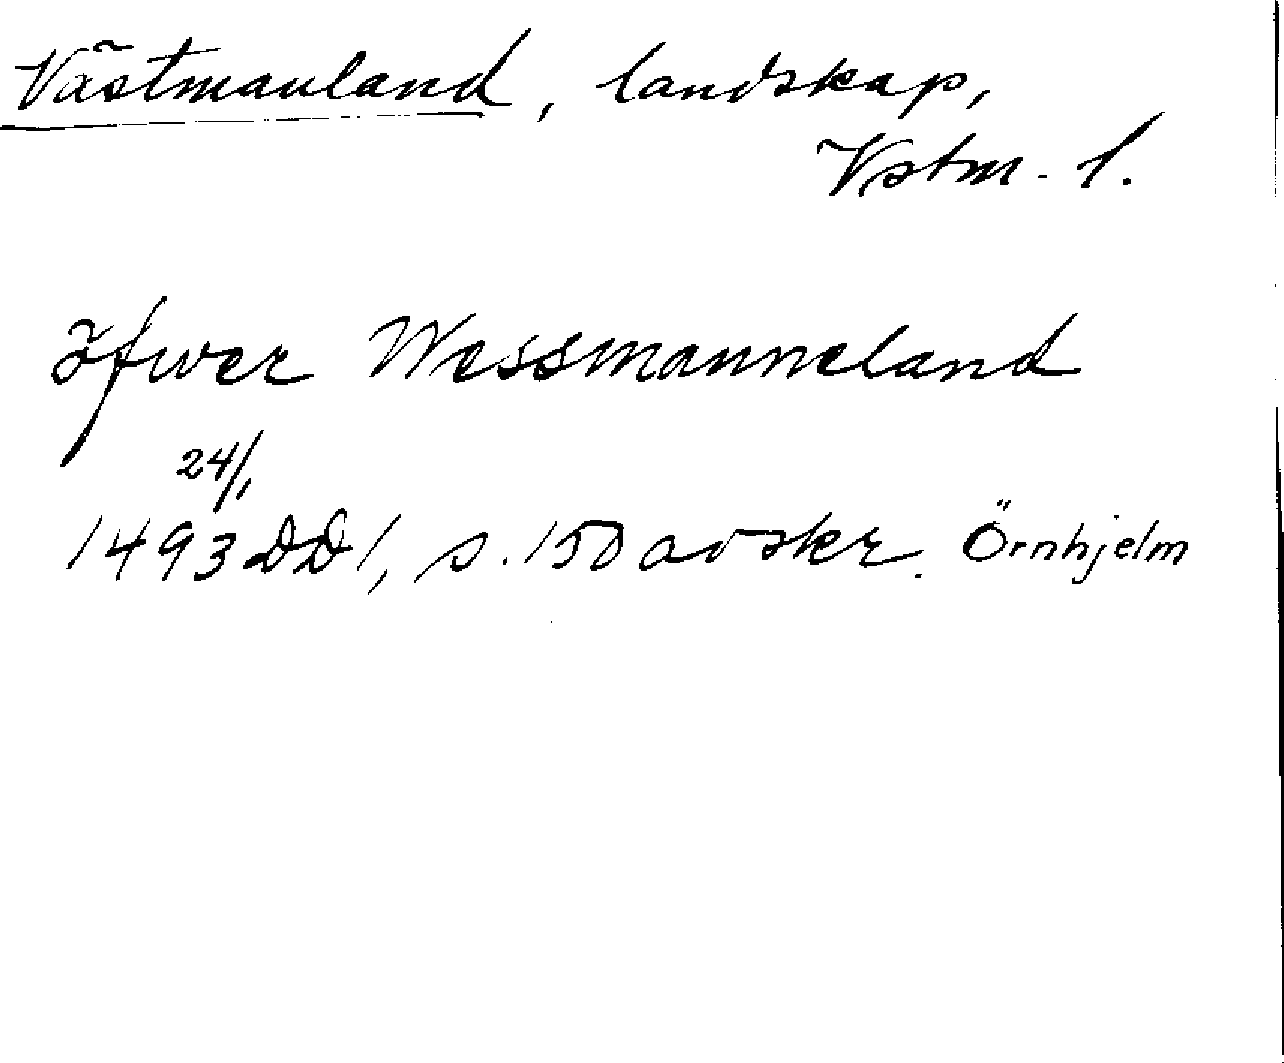 Västmanland, landskap,
Vstm. l.
öfwer Wessmanneland
24/1
1493 DD1, s. 150 avskr. Örnhjelm